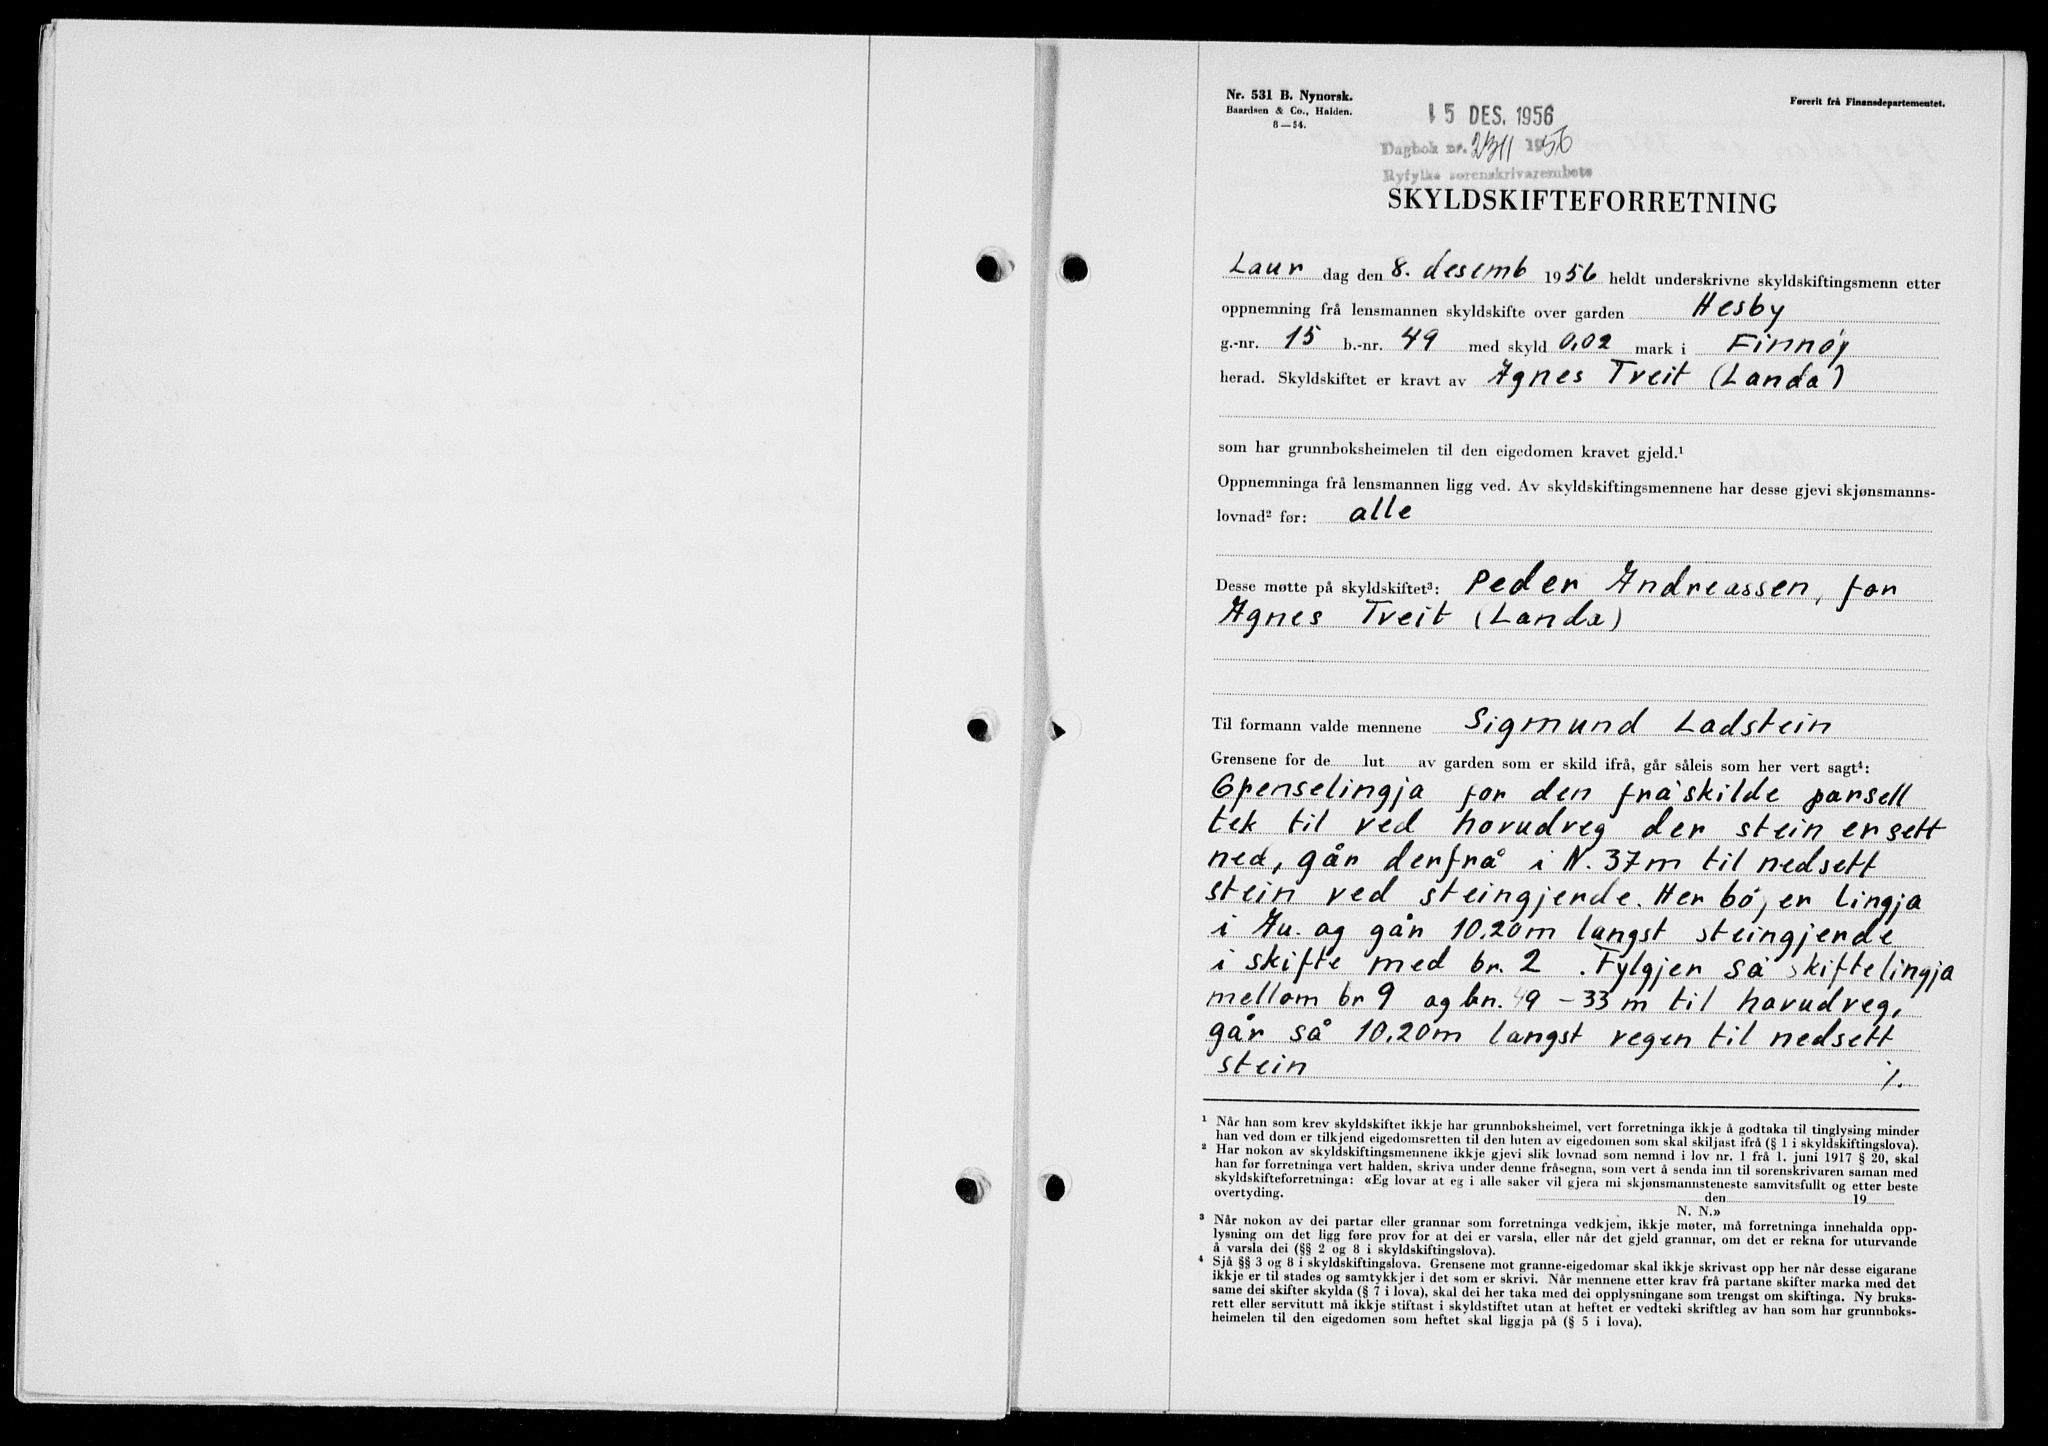 Nr. 531 B. Nynorsk.
Baardsen & Co., Halden.
8—54.
Førerit frå Finansdepartementet.
15 DES. 1956
Dagbok nr. 2311 1956
Ryfylke sorenskrivarembete
SKYLDSKIFTEFORRETNING
Laur dag den 8. desemb 1956 heldt underskrivne skyldskiftingsmenn etter
oppnemning frå lensmannen skyldskifte over garden Hesby
g.-nr. 15 b.-nr. 49 med skyld 0,02 mark i Finnøy
herad. Skyldskiftet er kravt av Agnes Tveit (Landa)
som har grunnboksheimelen til den eigedomen kravet gjeld.¹
Oppnemninga frå lensmannen ligg ved. Av skyldskiftingsmennene har desse gjevi skjønsmanns-
lovnad² før: alle
Desse møtte på skyldskiftet³: Peder Andreassen, for
Agnes Tveit (Landa)
Til formann valde mennene Sigmund Ladstein
Grensene for de lut av garden som er skild ifrå, går såleis som her vert sagt⁴:
Grenselingja for den fråskilde parsell
tek til ved hovudveg der stein er sett
ned, går derfrå i N. 37m til nedsett
stein ved steingjerde. Her bøjer lingja
i Au. og går 10,20m langst steingjerde
i skifte med br. 2. Fylgjer så skiftelingja
mellom br 9 og bn. 49 - 33 m til hovudveg,
går så 10,20m langst vegen til nedsett
stein ·/.
¹ Når han som krev skyldskiftet ikkje har grunnboksheimel, vert forretninga ikkje å godtaka til tinglysing minder
han ved dom er tilkjend eigedomsretten til den luten av eigedomen som skal skiljast ifrå (§ 1 i skyldskiftingslova).
² Har nokon av skyldskiftingsmennene ikkje gjevi slik lovnad som nemnd i lov nr. 1 frå 1. juni 1917 § 20, skal
han før forretninga vert halden, skriva under denne fråsegna, som vert å senda inn til sorenskrivaren saman med
skyldskifteforretninga: «Eg lovar at eg i alle saker vil gjera mi skjønsmannsteneste samvitsfullt og etter beste
overtyding. den 19
N. N.»
³ Når nokon av dei partar eller grannar som forretninga vedkjem, ikkje møter, må forretninga innehalda opp-
lysning om det ligg føre prov for at dei er varsla, eller når det gjeld grannar, om det er rekna for uturvande
å varsla dei (§§ 2 og 8 i skyldskiftingslova).
⁴ Sjå §§ 3 og 8 i skyldskiftingslova. Grensene mot granne-eigedomar skal ikkje skrivast opp her når desse eigarane
ikkje er til stades og samtykkjer i det som er skrivi. Når mennene etter krav frå partane skifter marka med det
same dei skifter skylda (§ 7 i lova), skal dei her taka med dei opplysningane som trengst om skiftinga. Ny bruks-
rett eller servitutt må ikkje stiftast i skyldstiftet utan at heftet er vedteki skriftleg av han som har grunnboks-
heimelen til den eigedomen som heftet skal liggja på (§ 5 i lova).